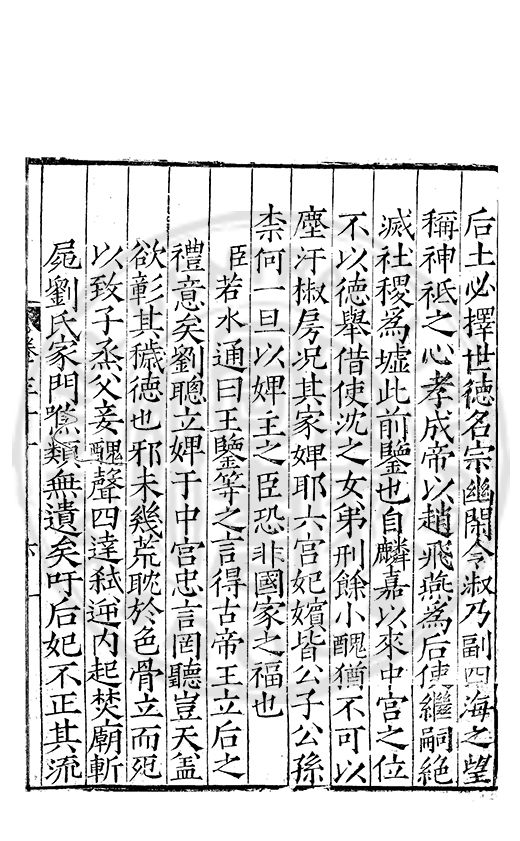 后土必擇世德名宗幽閑令淑乃副四海之望
稱神祇之心孝成帝以趙飛燕爲后使繼嗣絶
滅社稷爲墟此前鑒也自麟嘉以來中宫之位
不以德舉借使沈之女弟刑餘小醜猶不可以
塵汙椒房况其家婢耶六宫妃嬪皆公子公孫
柰何一旦以婢主之臣恐非國家之福也
臣若水通曰王鑒等之言得古帝王立后之
禮意矣劉聰立婢于中宫忠言罔聽豈天盖
欲彰其穢德也邪未幾荒耽於色骨立而死
以致子烝父妾醜聲四達弒逆内起焚廟斬
屍劉氏家門噍類無遺矣吁后妃不正其流